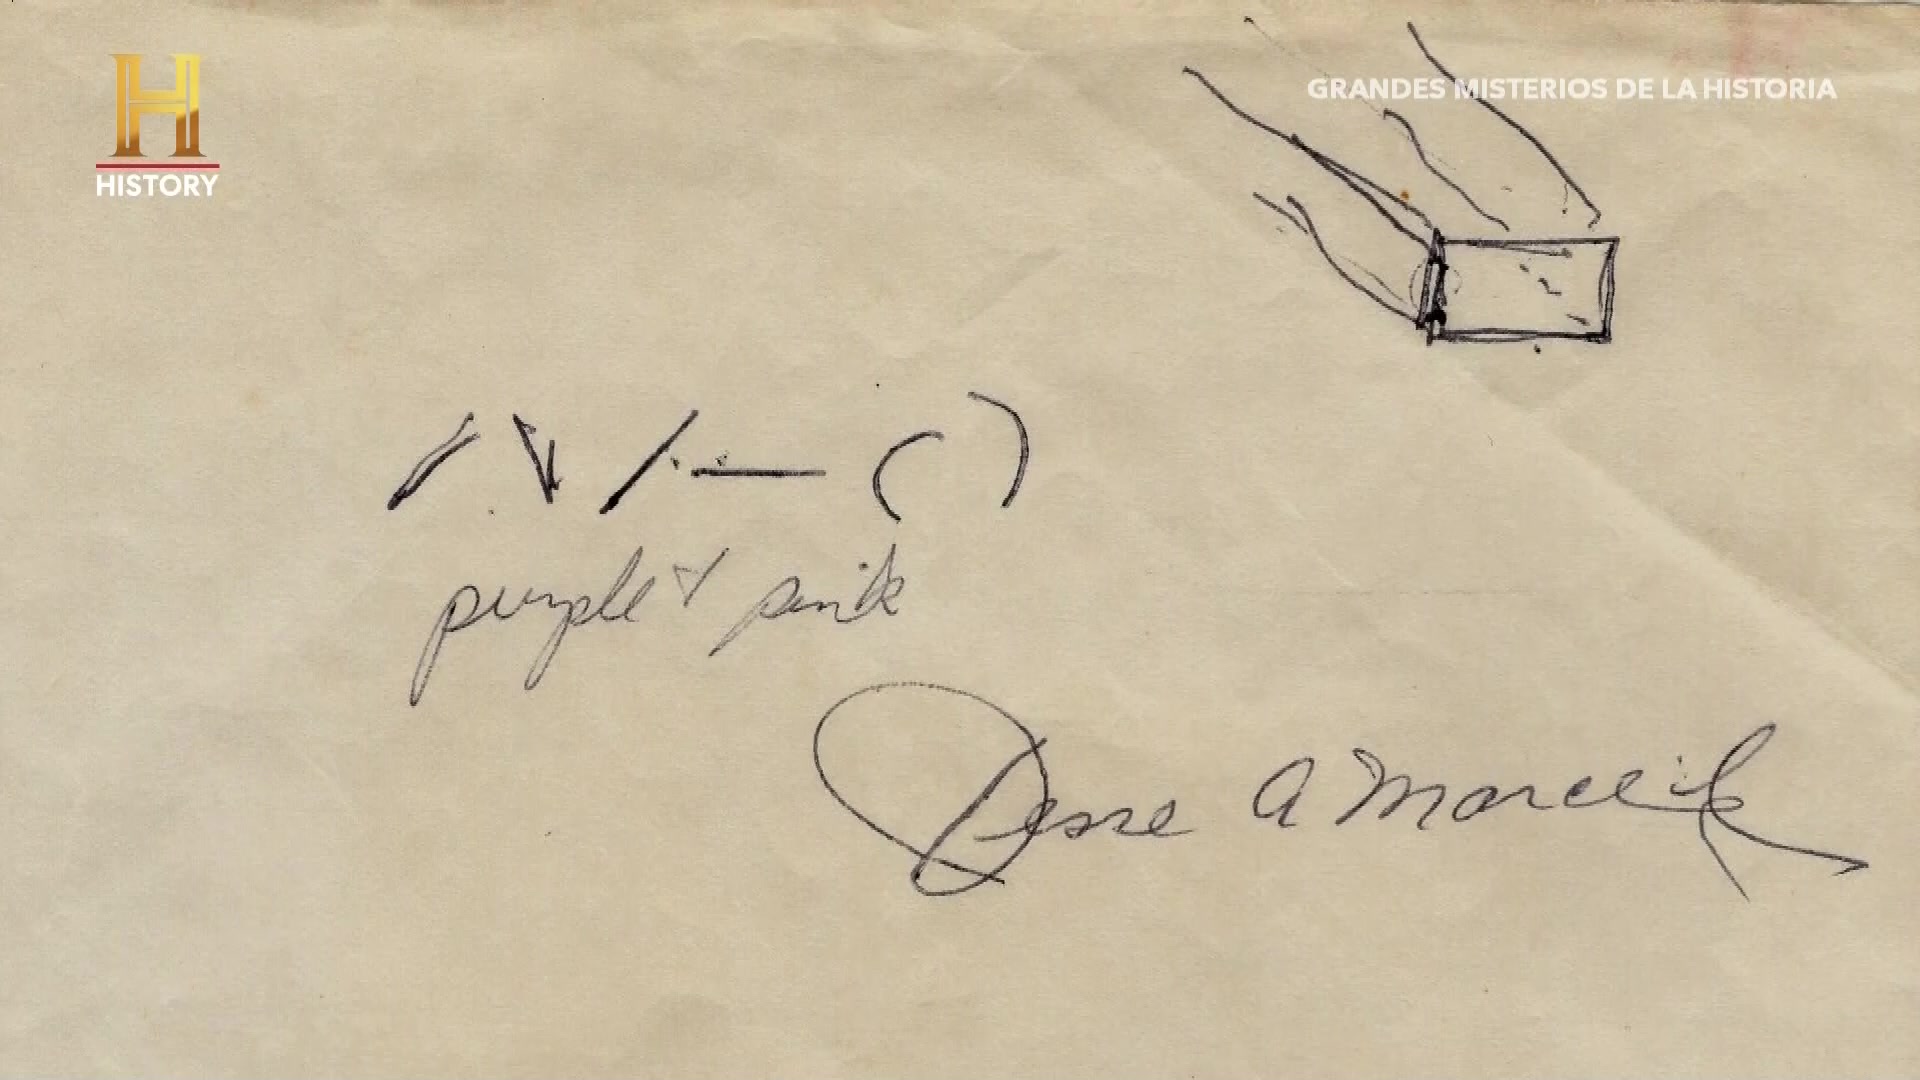 HISTORY
GRANDES MISTERIOS DE LA HISTORIA
purple & pink
Jesse A Marcel